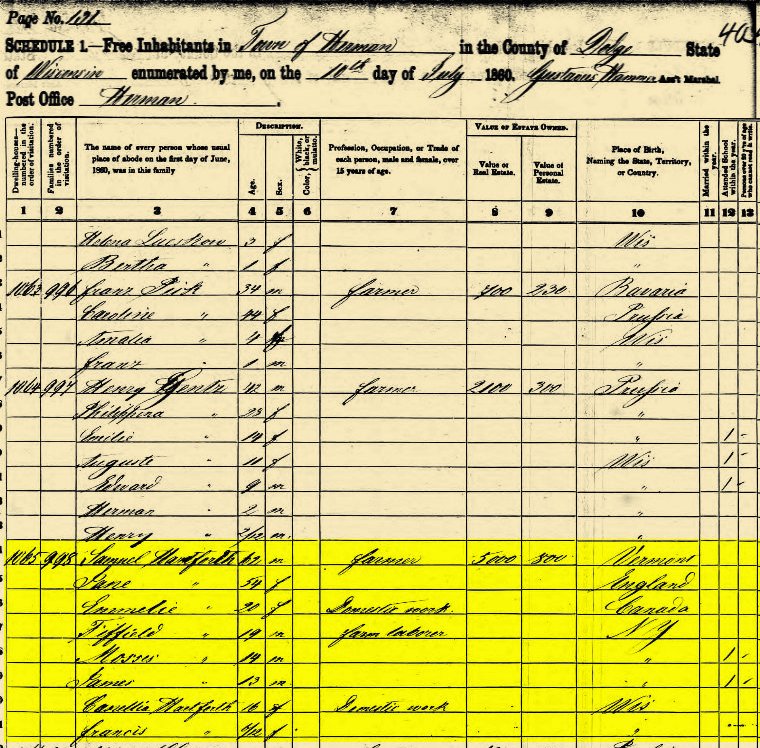 Page No. 121
404
SCHEDULE 1.—Free Inhabitants in Town of Herman in the County of Dodge State
of Wisconsin enumerated by me, on the 10th day of July 1860. Gustavus Hammer Ass't Marshal.
Post Office Herman.
Dwelling-houses—numbered in the order of visitation.
Families numbered in the order of visitation.
The name of every person whose usual place of abode on the first day of June, 1860, was in this family
DESCRIPTION.
Age.
Sex.
Color, White, black, or mulatto.
Profession, Occupation, or Trade of each person, male and female, over 15 years of age.
VALUE OF ESTATE OWNED.
Value of Real Estate.
Value of Personal Estate.
Place of Birth, Naming the State, Territory, or Country.
Married within the year.
Attended School within the year.
Persons over 20 y'rs of age who cannot read & write.
1 2 3 4 5 6 7 8 9 10 11 12 13
Helena 3 f Wis
Bertha " 1 f "
1063 996 Franz Pick 34 m farmer 700 230 Bavaria
Caroline " 44 f Prussia
Amalia " 4 f Wis
Franz " 1 m "
1064 997 Henry Gentz 42 m farmer 2100 300 Prussia
Philippina " 23 f "
Emilie " 14 f " 1
Auguste " 11 f Wis 1
Edward " 9 m " 1
Herman " 2 m "
Henry " 2/12 m "
1065 998 Samuel Hartforth 62 m farmer 5000 800 Vermont
Jane " 54 f England
Emmelie " 20 f Domestic work. Canada
Fiffield " 19 m farm laborer NY
Mosses " 14 m " 1
James " 13 m " 1
Hartforth 16 f Domestic work Wis
Francis " f "